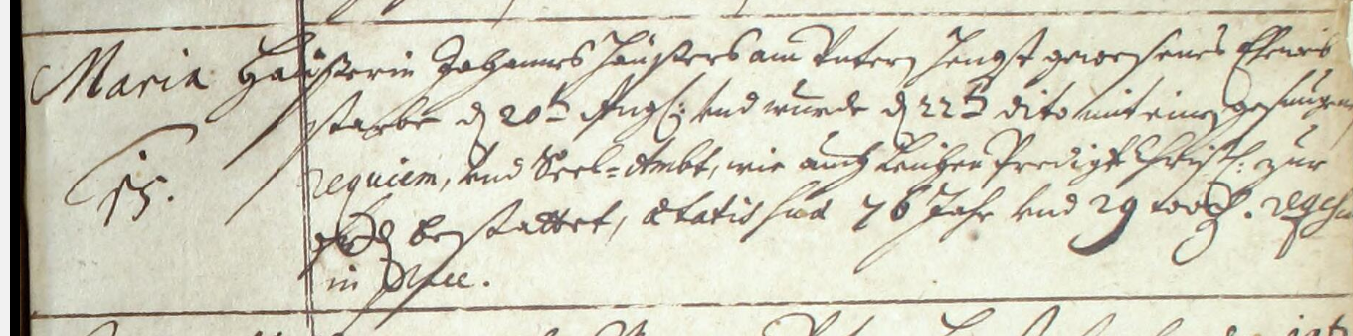 Maria Häußerin Johannes Häußers am Untern Hengst gewesenes Eheweib
starbe den 20ten Aug: und wurde den 22ten dito mit einem gesungenen
15.
requiem, und Seel-Ambt, wie auch Leichen Predigt Christl: zur
Erden bestattet, ætatis suæ 76 Jahr und 29 woch.
in Pace.